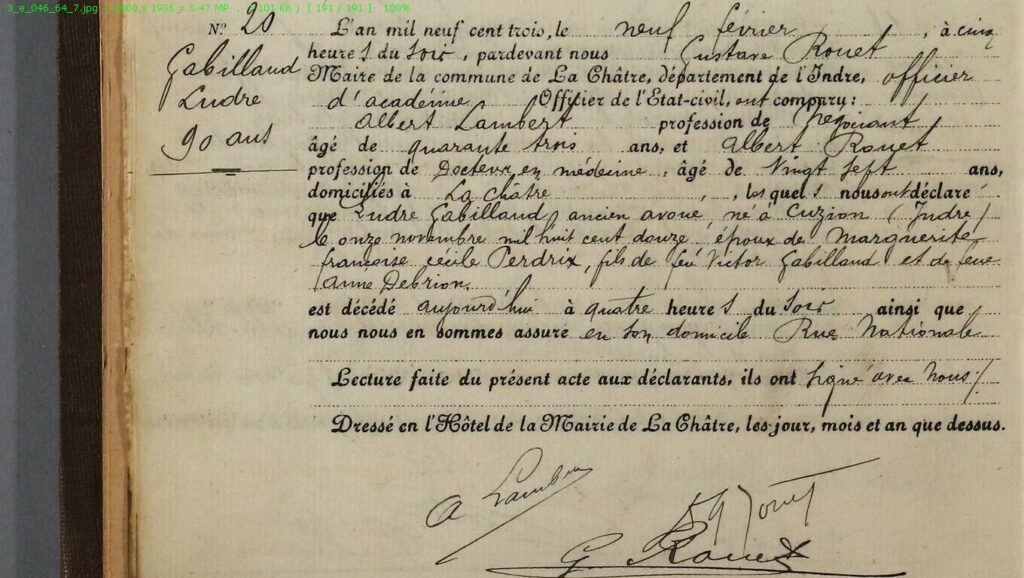 3_e_046_64_7.jpg 2808 x 1955 = 5.47 MP 101 KB ) [ 191 / 191 ] 100%
N° 20
Gabilland
Ludre
90 ans
L'an mil neuf cent trois, le neuf février, à cinq
heures du soir, pardevant nous Gustave Rouet
Maire de la commune de La Châtre, département de l'Indre, officier
d'académie Officier de l'Etat-civil, ont comparu:
Albert Lambert profession de négociant,
âgé de quarante trois ans, et Albert Rouet
profession de Docteur en médecine, âgé de Vingt sept ans,
domiciliés à La Châtre, lesquels nous ont déclaré
que Ludre Gabilland, ancien avoué, né à Cuzion (Indre)
le onze novembre mil huit cent douze, époux de Marguerite
françoise cécile Perdrix, fils de feu Victor Gabilland et de feue
Anne Debrion.
est décédé aujourd'hui à quatre heures du soir ainsi que
nous nous en sommes assuré en son domicile Rue Nationale
Lecture faite du présent acte aux déclarants, ils ont signé avec nous./
Dressé en l'Hôtel de la Mairie de La Châtre, les jour, mois et an que dessus.
A Lambert
Rouet
G. Rouet